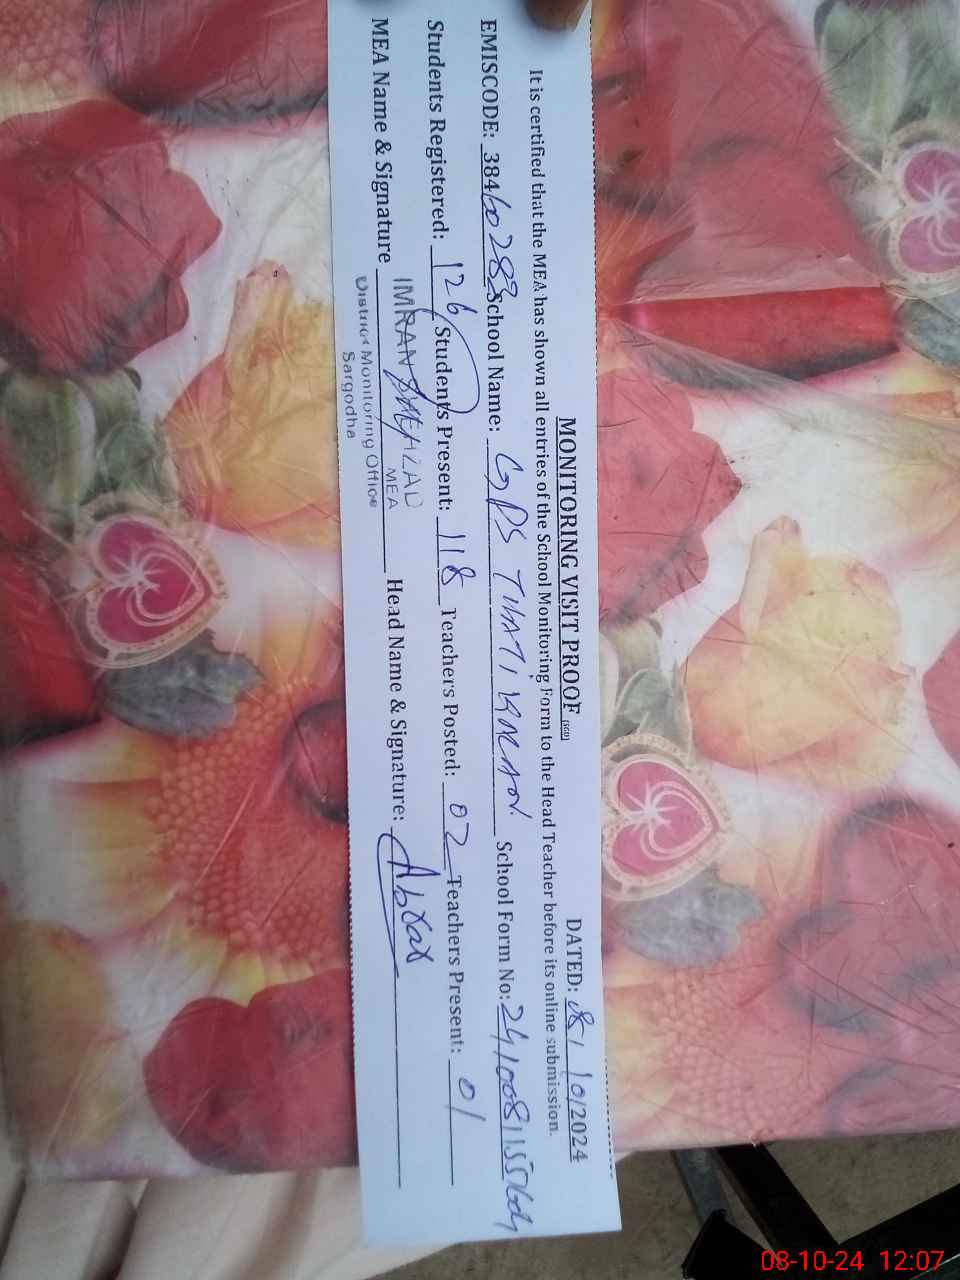 MONITORING VISIT PROOF (SED) DATED: 08/10/2024
It is certified that the MEA has shown all entries of the School Monitoring Form to the Head Teacher before its online submission.
EMISCODE: 38460283 School Name: GPS THATI School Form No:
Students Registered: 126 Students Present: 118 Teachers Posted: 02 Teachers Present: 01
MEA Name & Signature IMRAN Head Name & Signature:
MEA
District Monitoring Office
Sargodha
08-10-24 12:07